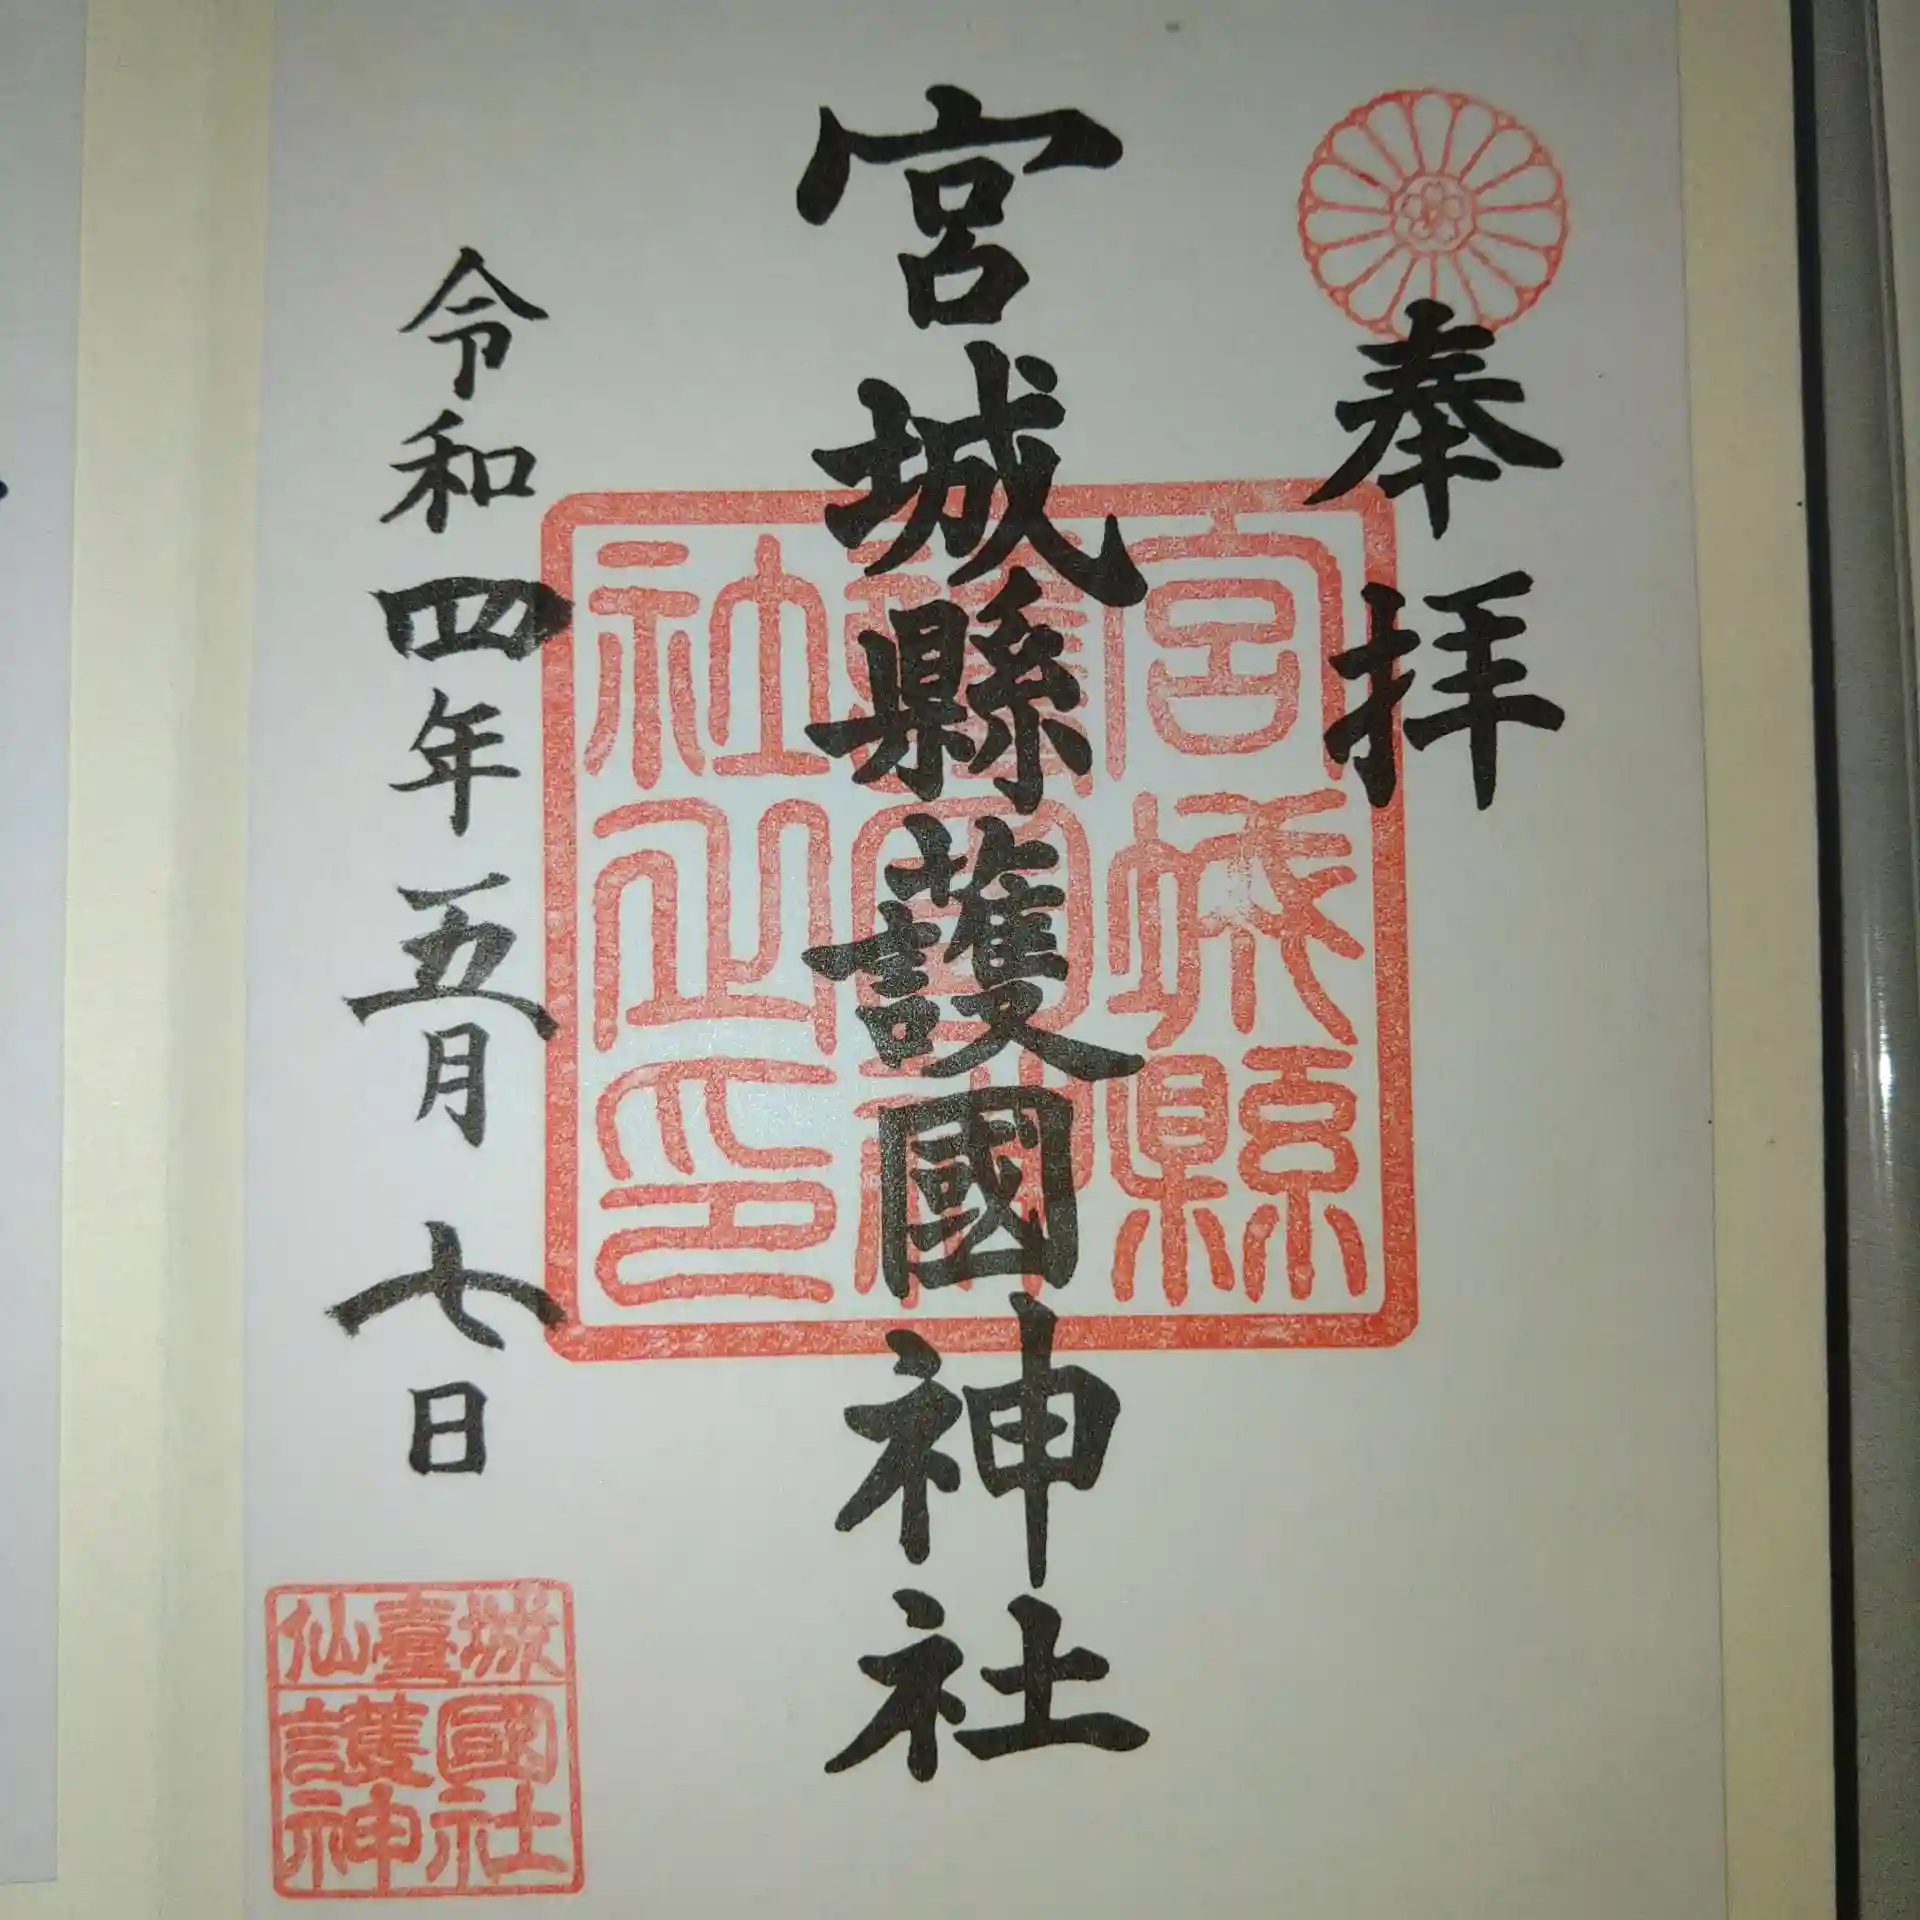 奉拝
宮城縣護國神社
宮城縣
護國神
社之印
令和四年五月七日
仙臺城
護國
神社